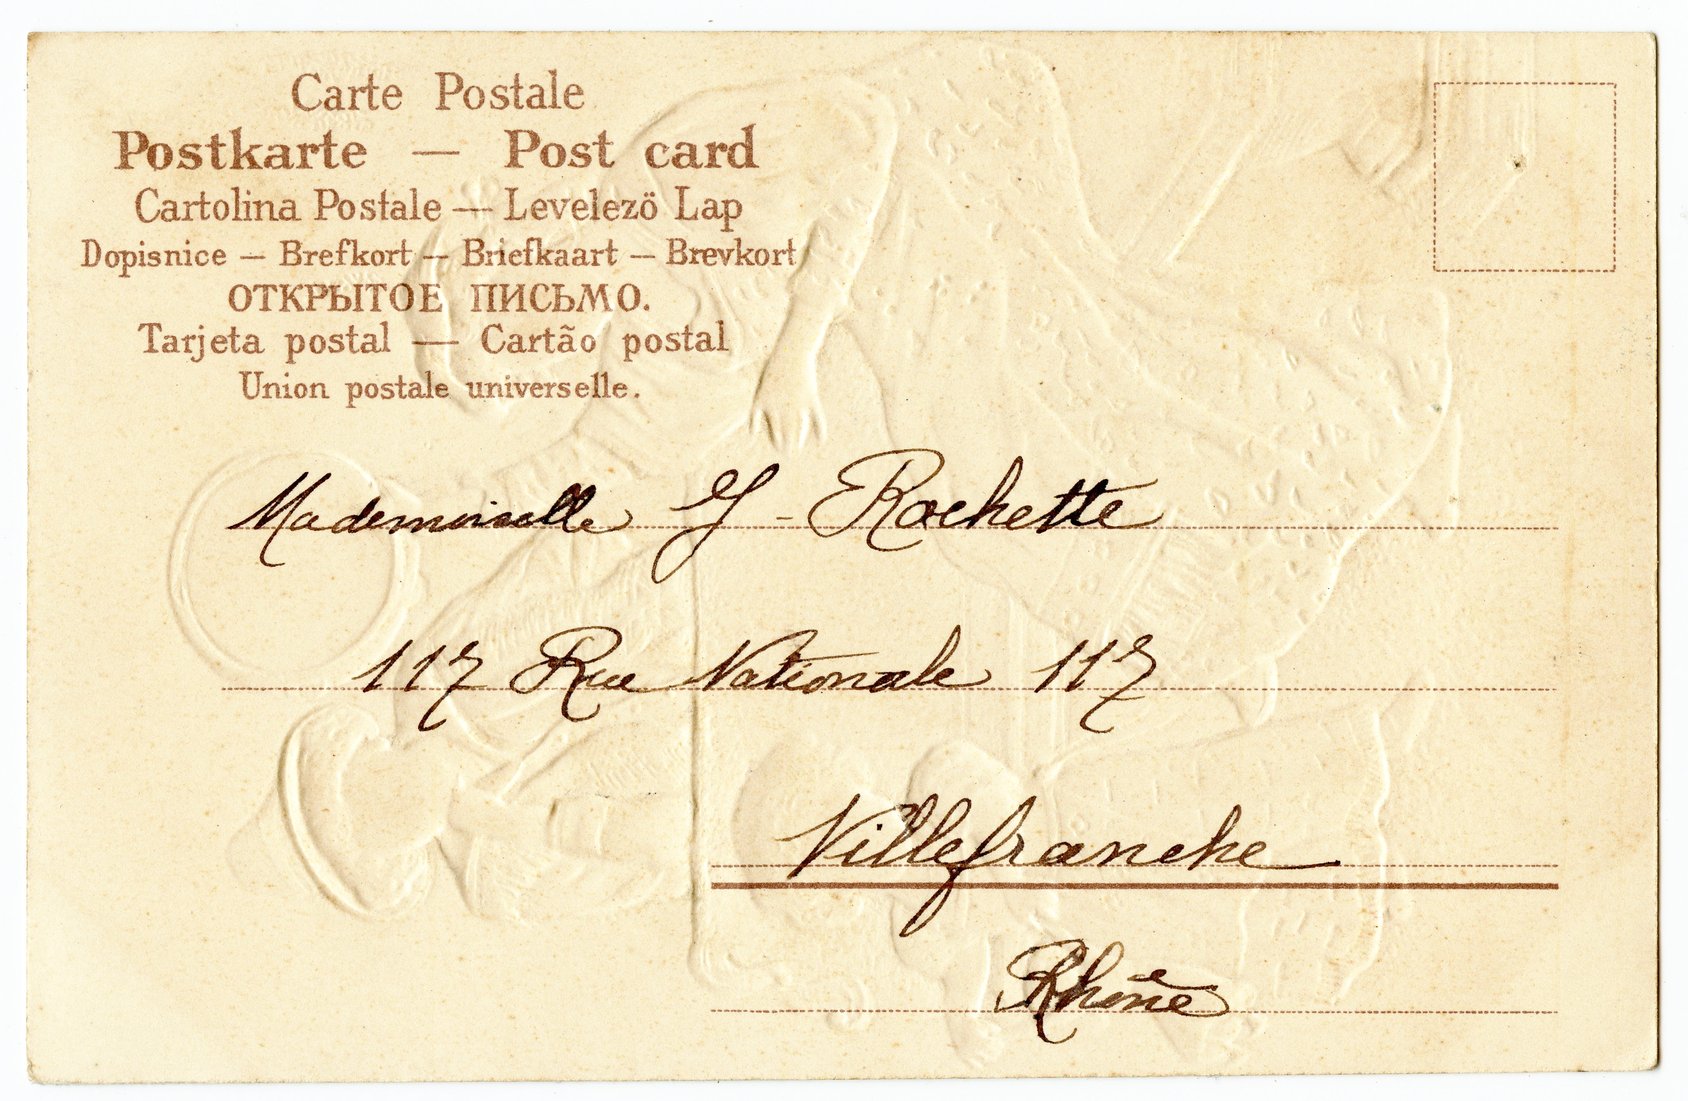 Carte Postale
Postkarte — Post card
Cartolina Postale — Levelezö Lap
Dopisnice — Brefkort — Briefkaart — Brevkort
ОТКРЫТОЕ ПИСЬМО.
Tarjeta postal — Cartão postal
Union postale universelle.
Mademoiselle J - Rochette
117 Rue Nationale 117
Villefranche
Rhône